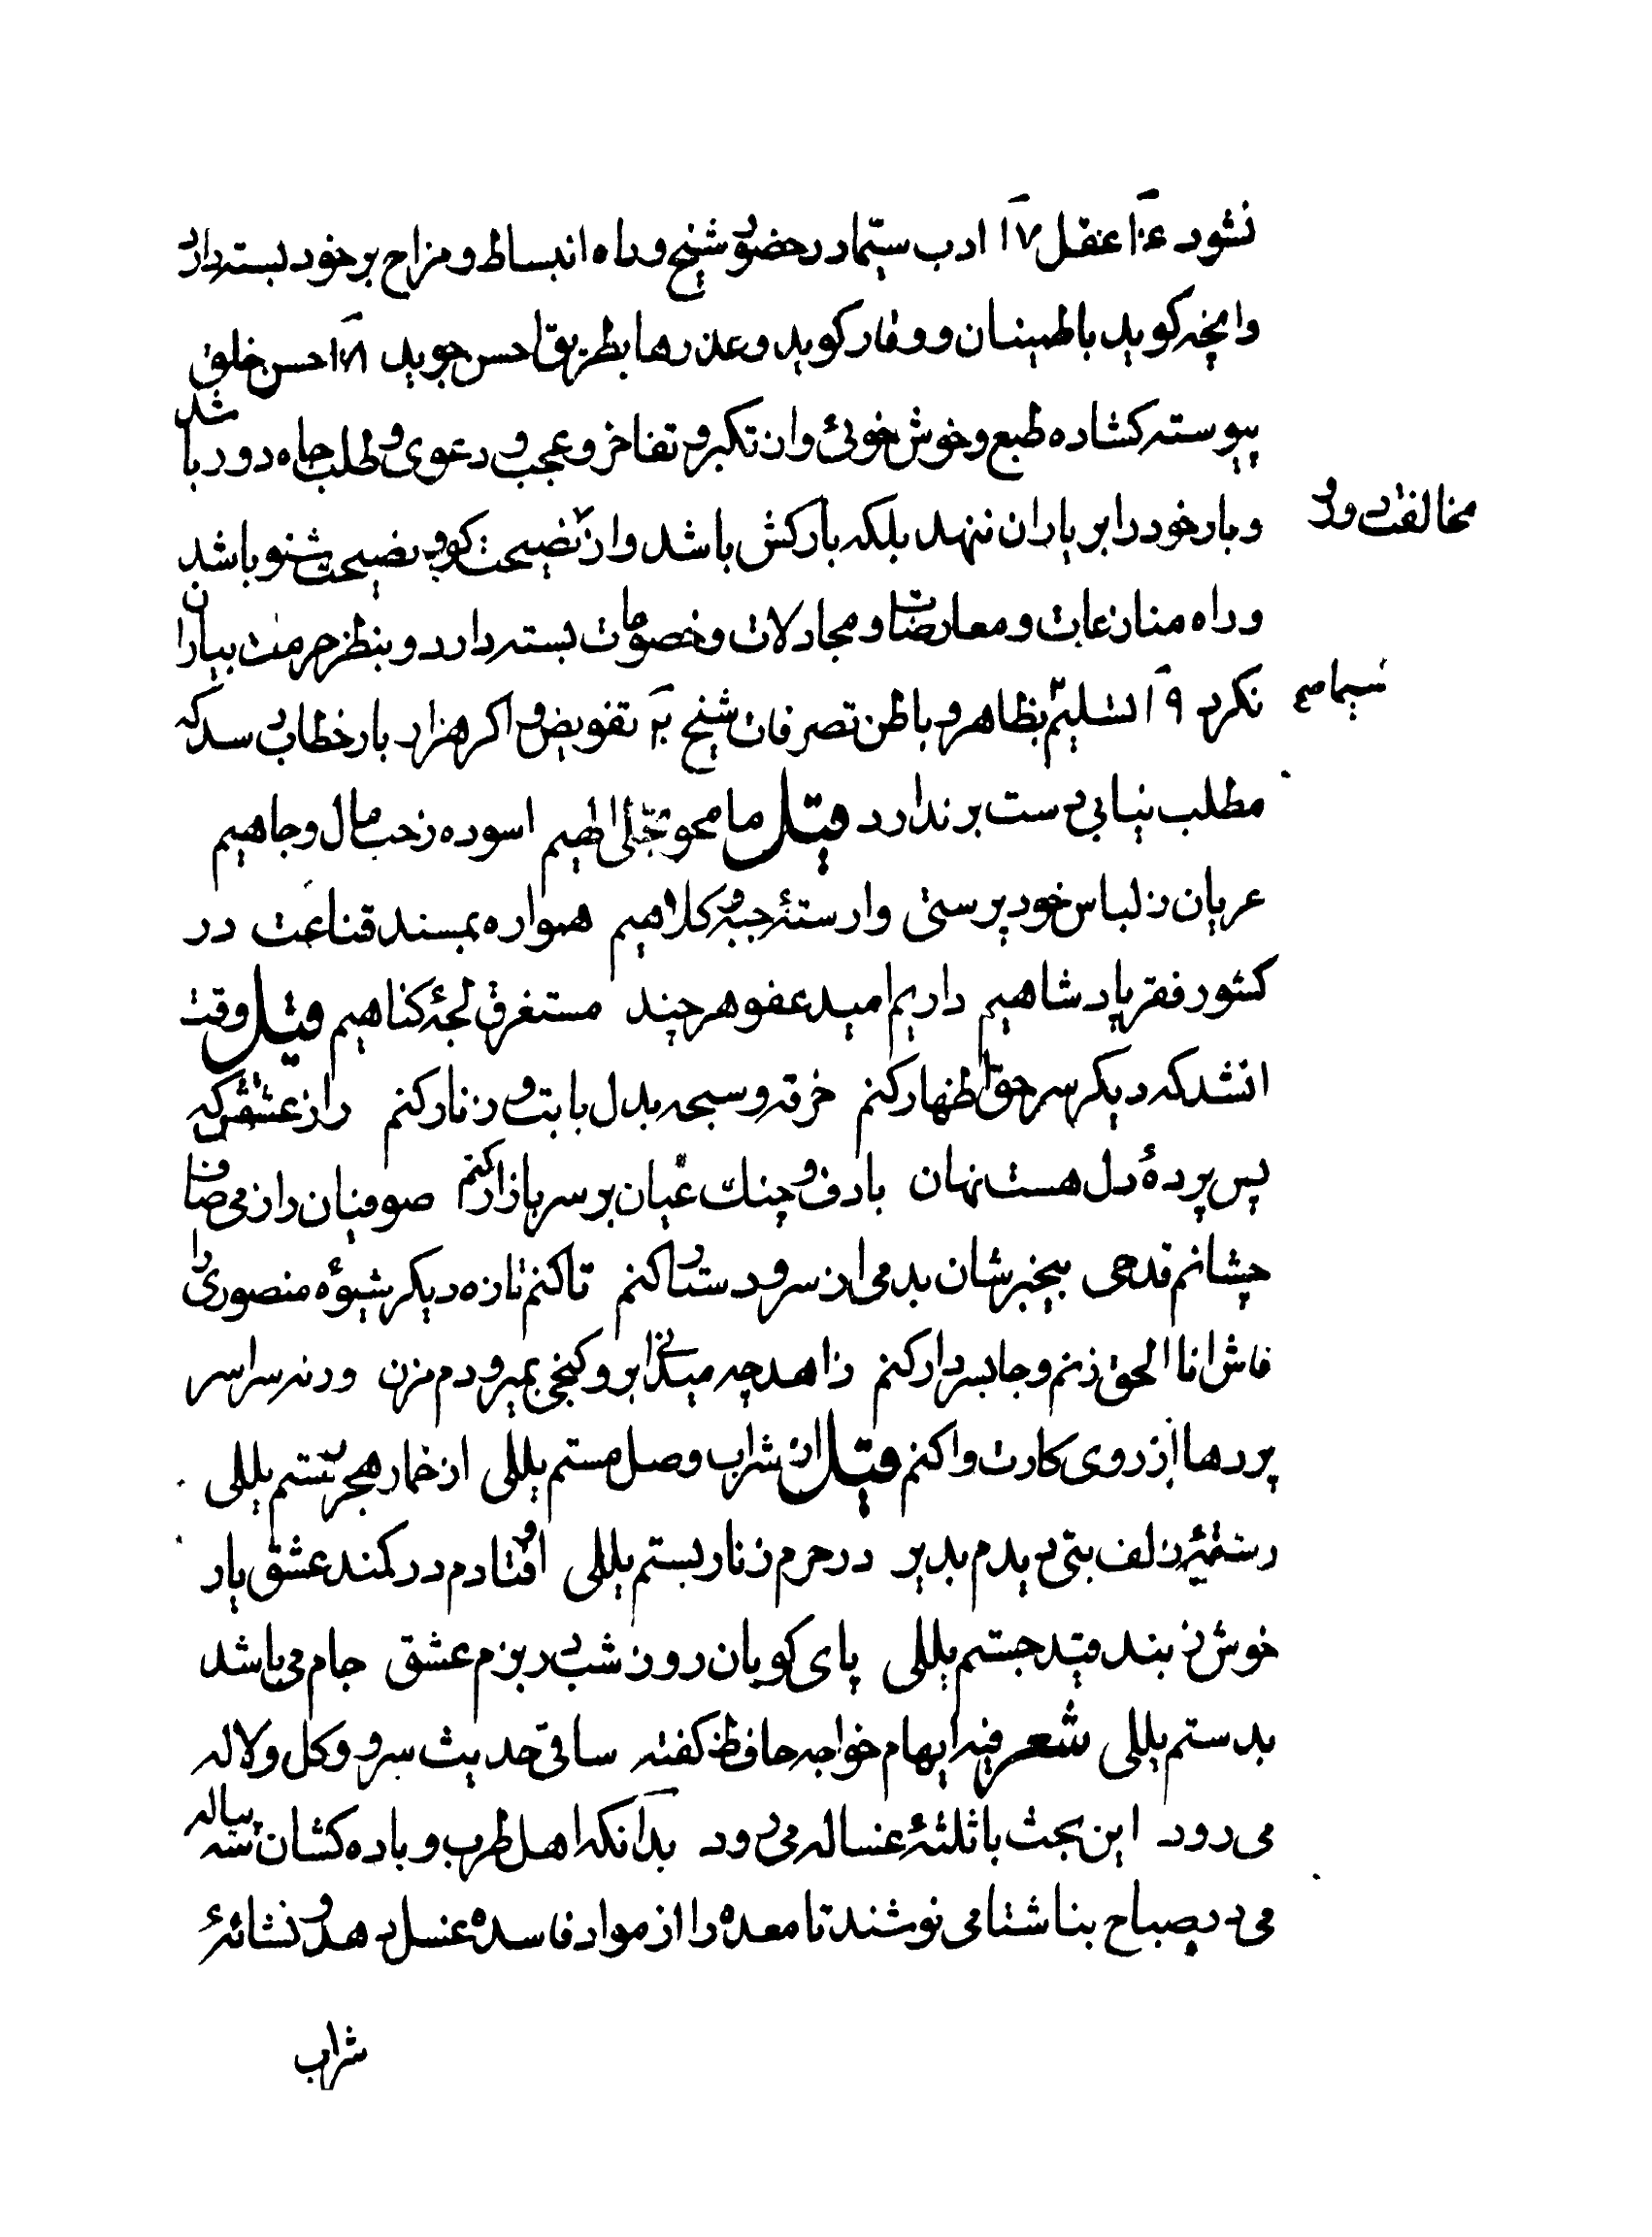 نشود ۱۶ عقل ۱۷ ادب سیّما در حضور شیخ و راه انبساط و مزاح بر خود بسته دارد
و انچه کوید باطمینان و وقار کوید و عذرها بطریق احسن جوید ۱۸ حسن خلق
پیوسته کشاده طبع و خوش خوئی و از تکبر و تفاخر و عجب و دعوی و طلب جاه دور باشد
و بار خود را بر یاران ننهد بلکه بارکش باشد و از نصیحت کو و نصیحت شنو باشد
مخالفت و رد
و راه منازعات و معارضات و مجادلات و خصومات بسته دارد و بنظر حرمت بیاران
نکرد ۱۹ تسلیم بظاهر و باطن تصرفات شیخ ۲۰ تفویض و اکر هزار بار خطاب رسد که
سیما صح
مطلب نیابی دست برندارد قیل ما محو تجلی الهیم اسوده ز حب مال و جاهیم
عریان ز لباس خود پرستی وارستهٔ جبه و کلاهیم همواره بمسند قناعت در
کشور فقر پادشاهیم داریم امید عفو هر چند مستغرق لجهٔ کناهیم قیل وقت
انشد که دیکر سر حق اظهار کنم خرقه و سبحه بدل با بت و زنار کنم راز عشقش که
پس پردهٔ دل هست نهان با دف و چنك عیان بر سر بازار کنم صوفیان را ز می صاف
چشانم قدحی بیخبرشان بدمی از سر و دستار کنم تا کنم تازه دیکر شیوهٔ منصوری را
فاش انا الحق زنم و جا بسر دار کنم زاهد چه میکنی برو کنجی بمیر و دم مزن ورنه سراسر
پردها از روی کارت واکنم قیل از شراب وصل مستم یللی از خمار هجر رستم یللی
رشتهٔ زلف بتی دیدم بدیر در حرم زنار بستم یللی اوفتادم در کمند عشق یار
خوش ز بند قید جستم یللی پای کوبان روز شب در بزم عشق جام می باشد
بدستم یللی شعر فیه ایهام خواجه حافظ کفته ساقی حدیث سرو و کل و لاله
می رود این بحث با ثلثهٔ غساله می رود بدانکه اهل طرب و باده کشان سه پیاله
می در صباح بناشتا می نوشند تا معده را از مواد فاسده غسل دهد و نشائهٔ
شراب